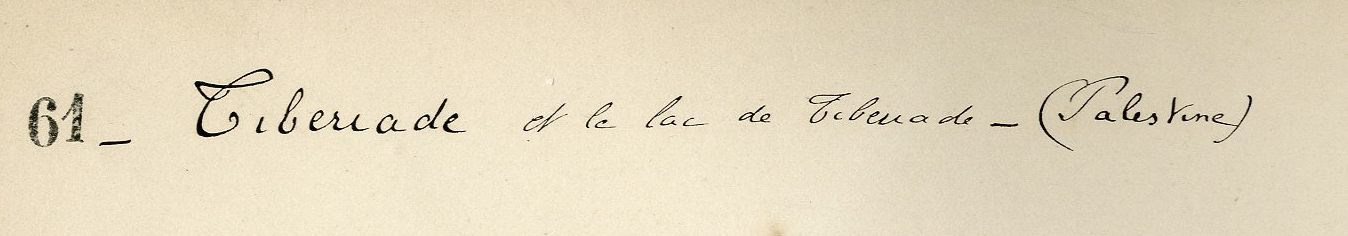 61_ Tiberiade et le lac de Tiberiade _ (Palestine)